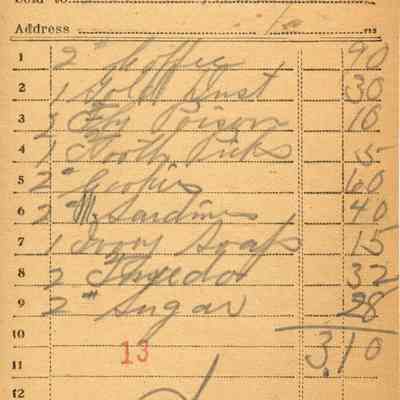 Sold to
Address
1 2" Coffee 90
2 1 Gold Dust 30
3 2 Fly Poison 10
4 1 Tooth Picks 5
5 2" Cookies 60
6 2" Sardines 40
7 1 Ivory Soap 15
8 2 Tuxedo 32
9 2" Sugar 28
10 3.10
11 13
12